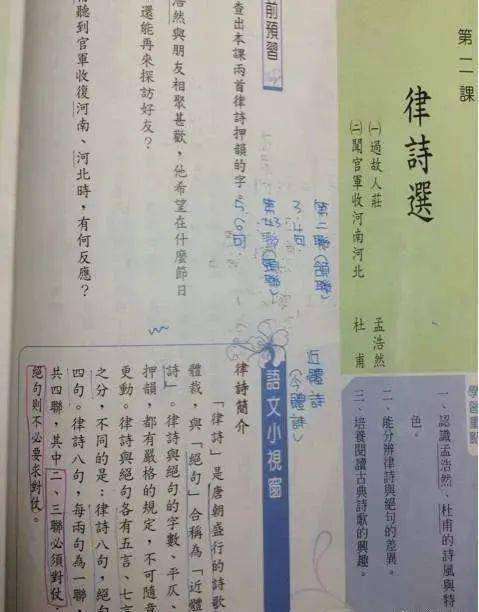 第二課
律詩選
㈠過故人莊
孟浩然
㈡聞官軍收河南河北
杜甫
學習重點
一、認識孟浩然、杜甫的詩風與特
色。
二、能分辨律詩與絕句的差異。
三、培養閱讀古典詩歌的興趣。
前預習
查出本課兩首律詩押韻的字。
浩然與朋友相聚甚歡，他希望在什麼節日
還能再來探訪好友？
聽到官軍收復河南、河北時，有何反應？
第二聯(頷聯)
3.4句
第三聯(頸聯)
5.6句
近體詩
(今體詩)
語文小視窗
律詩簡介
「律詩」是唐朝盛行的詩歌
體裁，與「絕句」合稱為「近體
詩」。律詩與絕句的字數、平仄、
押韻，都有嚴格的規定，不可隨意
更動。律詩與絕句各有五言、七言
之分，不同的是：律詩八句，絕句
四句。律詩八句，每兩句為一聯，
共四聯，其中二、三聯必須對仗，
絕句則不必要求對仗。